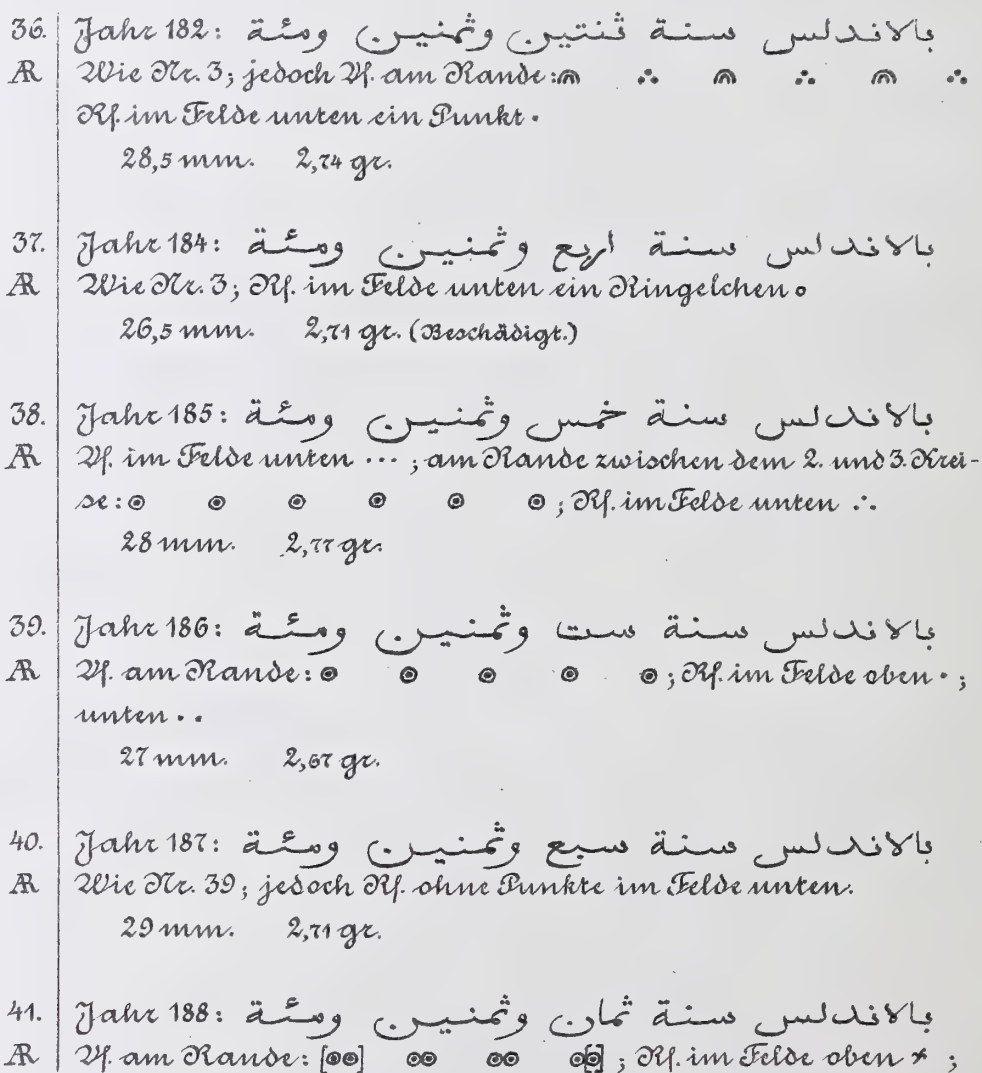 36. Jahr 182: بالاندلس سنة ثنتين وثمنين ومئة
AR Wie Nr. 3; jedoch Vf. am Rande: ∴ ∴ ∴
Rf. im Felde unten ein Punkt •
28,5 mm. 2,74 gr.
37. Jahr 184: بالاندلس سنة اربع وثمنين ومئة
AR Wie Nr. 3; Rf. im Felde unten ein Ringelchen o
26,5 mm. 2,71 gr. (Beschädigt.)
38. Jahr 185: بالاندلس سنة خمس وثمنين ومئة
AR Vf. im Felde unten ...; am Rande zwischen dem 2. und 3. Krei-
se: ◉ ◉ ◉ ◉ ◉ ◉; Rf. im Felde unten ∴
28 mm. 2,77 gr.
39. Jahr 186: بالاندلس سنة ست وثمنين ومئة
AR Vf. am Rande: ◉ ◉ ◉ ◉ ◉; Rf. im Felde oben •;
unten • •
27 mm. 2,67 gr.
40. Jahr 187: بالاندلس سنة سبع وثمنين ومئة
AR Wie Nr. 39; jedoch Rf. ohne Punkte im Felde unten.
29 mm. 2,71 gr.
41. Jahr 188: بالاندلس سنة ثمان وثمنين ومئة
AR Vf. am Rande: [◉◉] ◉◉ ◉◉ ◉[◉]; Rf. im Felde oben *;